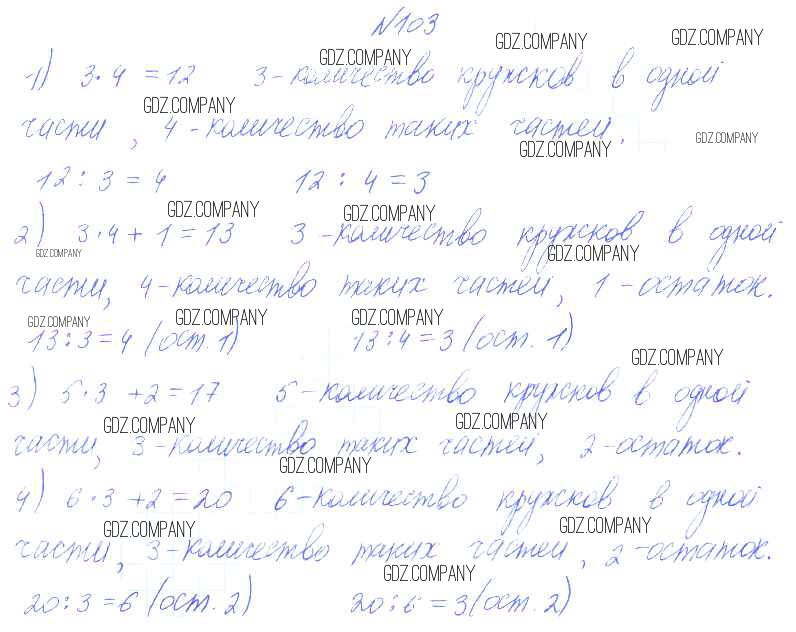 №103
GDZ.COMPANY GDZ.COMPANY GDZ.COMPANY
1) 3·4 = 12 3 - количество кружков в одной
GDZ.COMPANY
части, 4 - количество таких частей.
GDZ.COMPANY GDZ.COMPANY
12 : 3 = 4 12 : 4 = 3
GDZ.COMPANY GDZ.COMPANY
2) 3·4 + 1 = 13 3 - количество кружков в одной
GDZ.COMPANY GDZ.COMPANY
части, 4 - количество таких частей, 1 - остаток.
GDZ.COMPANY GDZ.COMPANY GDZ.COMPANY
13 : 3 = 4 (ост. 1) 13 : 4 = 3 (ост. 1)
GDZ.COMPANY
3) 5·3 + 2 = 17 5 - количество кружков в одной
GDZ.COMPANY GDZ.COMPANY
части, 3 - количество таких частей, 2 - остаток.
GDZ.COMPANY
4) 6·3 + 2 = 20 6 - количество кружков в одной
GDZ.COMPANY GDZ.COMPANY
части, 3 - количество таких частей, 2 - остаток.
GDZ.COMPANY
20 : 3 = 6 (ост. 2) 20 : 6 = 3 (ост. 2)